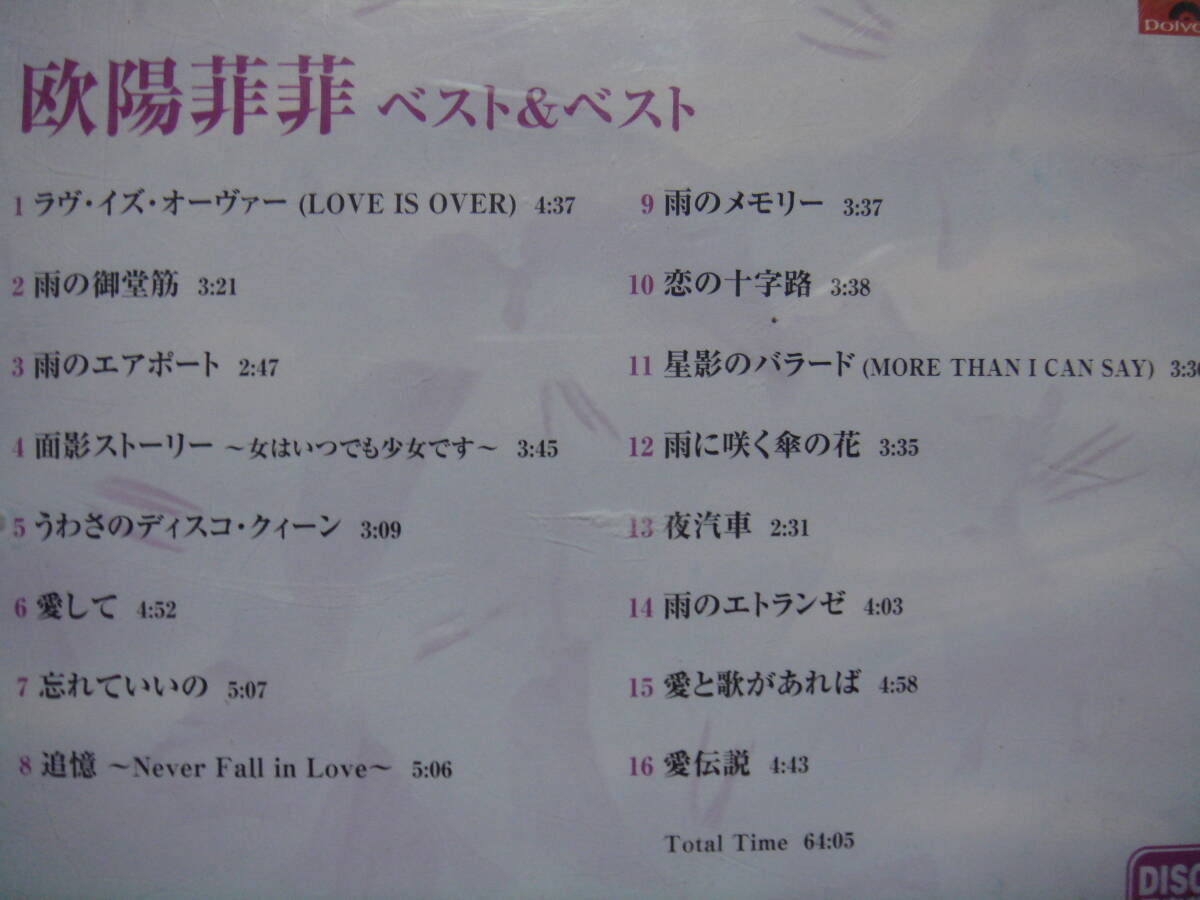 欧陽菲菲 ベスト&ベスト
1 ラヴ・イズ・オーヴァー (LOVE IS OVER) 4:37
2 雨の御堂筋 3:21
3 雨のエアポート 2:47
4 面影ストーリー ～女はいつでも少女です～ 3:45
5 うわさのディスコ・クィーン 3:09
6 愛して 4:52
7 忘れていいの 5:07
8 追憶 ～Never Fall in Love～ 5:06
9 雨のメモリー 3:37
10 恋の十字路 3:38
11 星影のバラード (MORE THAN I CAN SAY)
12 雨に咲く傘の花 3:35
13 夜汽車 2:31
14 雨のエトランゼ 4:03
15 愛と歌があれば 4:58
16 愛伝説 4:43
Total Time 64:05
DISC